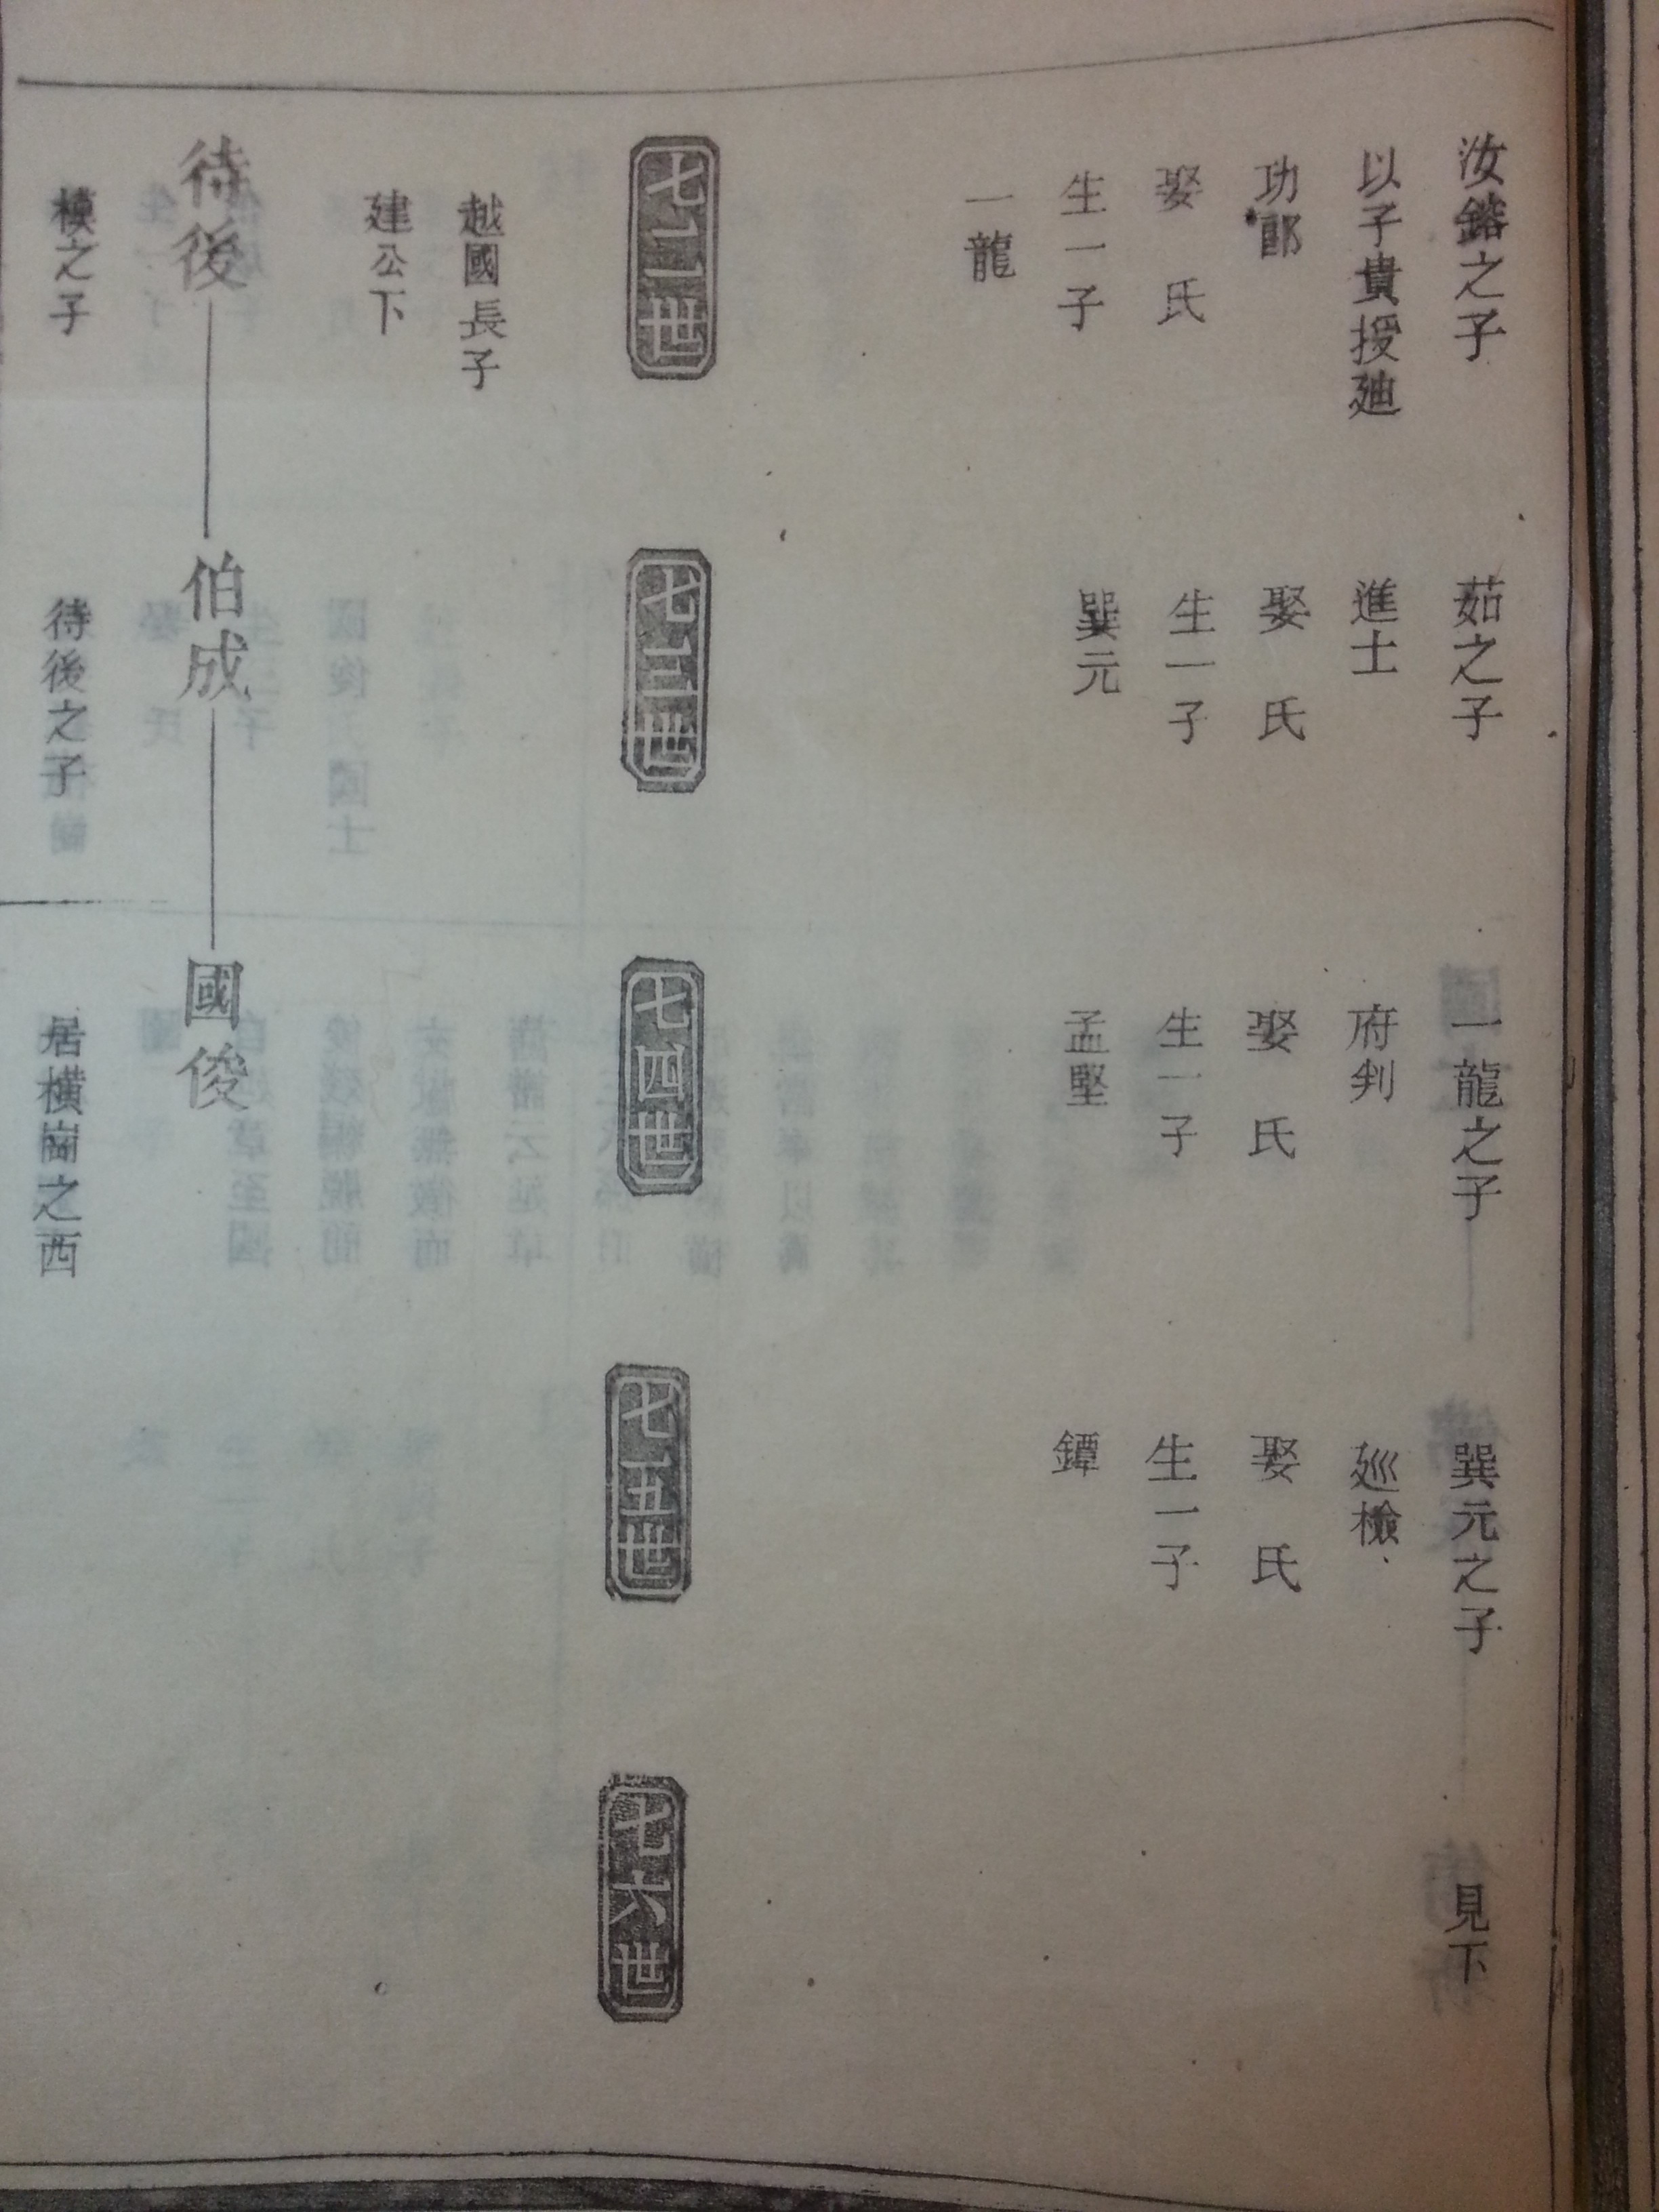 汝鎝之子
以子貴授廸
功郎
娶　氏
生一子
一龍
茹之子
進士
娶　氏
生一子
巽元
一龍之子
府判
娶　氏
生一子
孟堅
巽元之子
廵檢
娶　氏
生一子
鐔
見下
七二世
七三世
七四世
七五世
七六世
越國長子
建公下
待後
伯成
國俊
模之子
待後之子
居橫崗之西